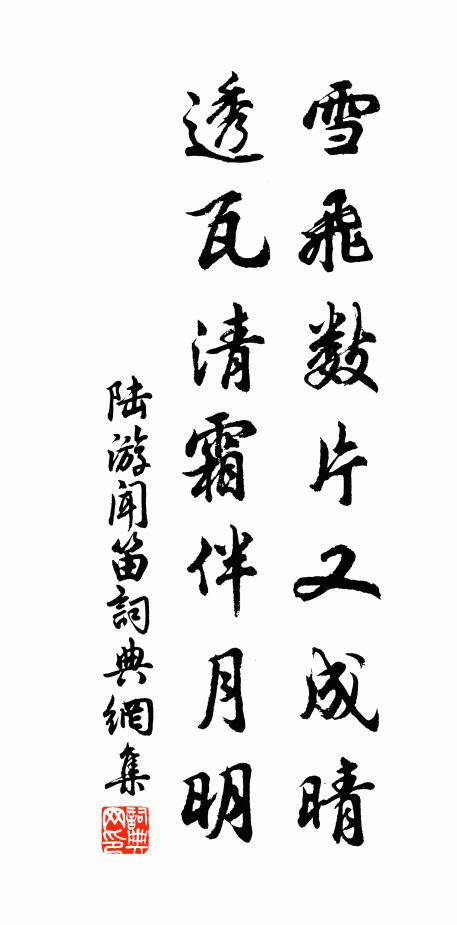 雪飛數片又成晴
透瓦清霜伴月明
陆游闻笛詞典網集
詞典网印